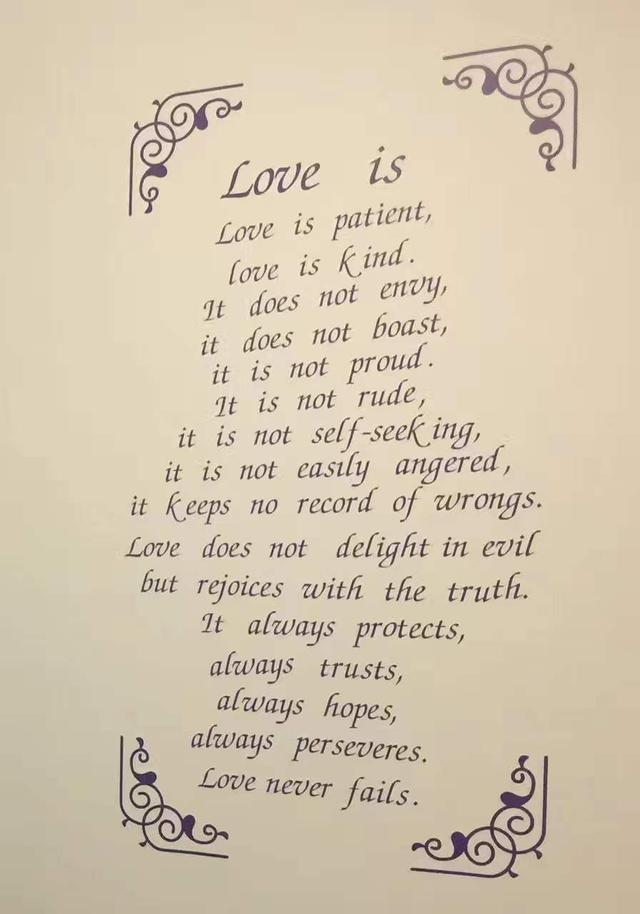 Love is
Love is patient,
love is kind.
It does not envy,
it does not boast,
it is not proud.
It is not rude,
it is not self-seeking,
it is not easily angered,
it keeps no record of wrongs.
Love does not delight in evil
but rejoices with the truth.
It always protects,
always trusts,
always hopes,
always perseveres.
Love never fails.